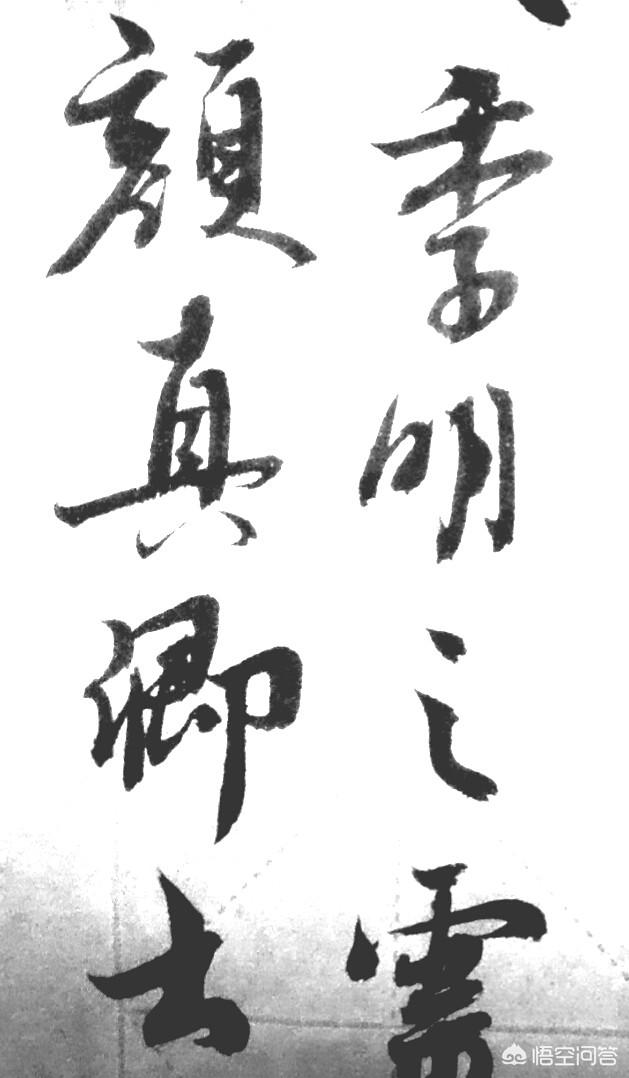 季明之
顏真卿去
悟空问答